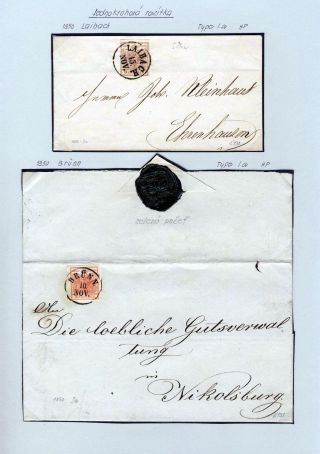 Jednokruhová razítka
1850 Laibach Typo Ia HP
LAIBACH
15
NOV.
Herrn Joh. Kleinhaut
Ehrenhausen
1850 Brünn Typo Ia HP
zelená pečeť
BRÜNN
10.
NOV.
An
Die loebliche Gutsverwal-
tung
in
Nikolsburg.